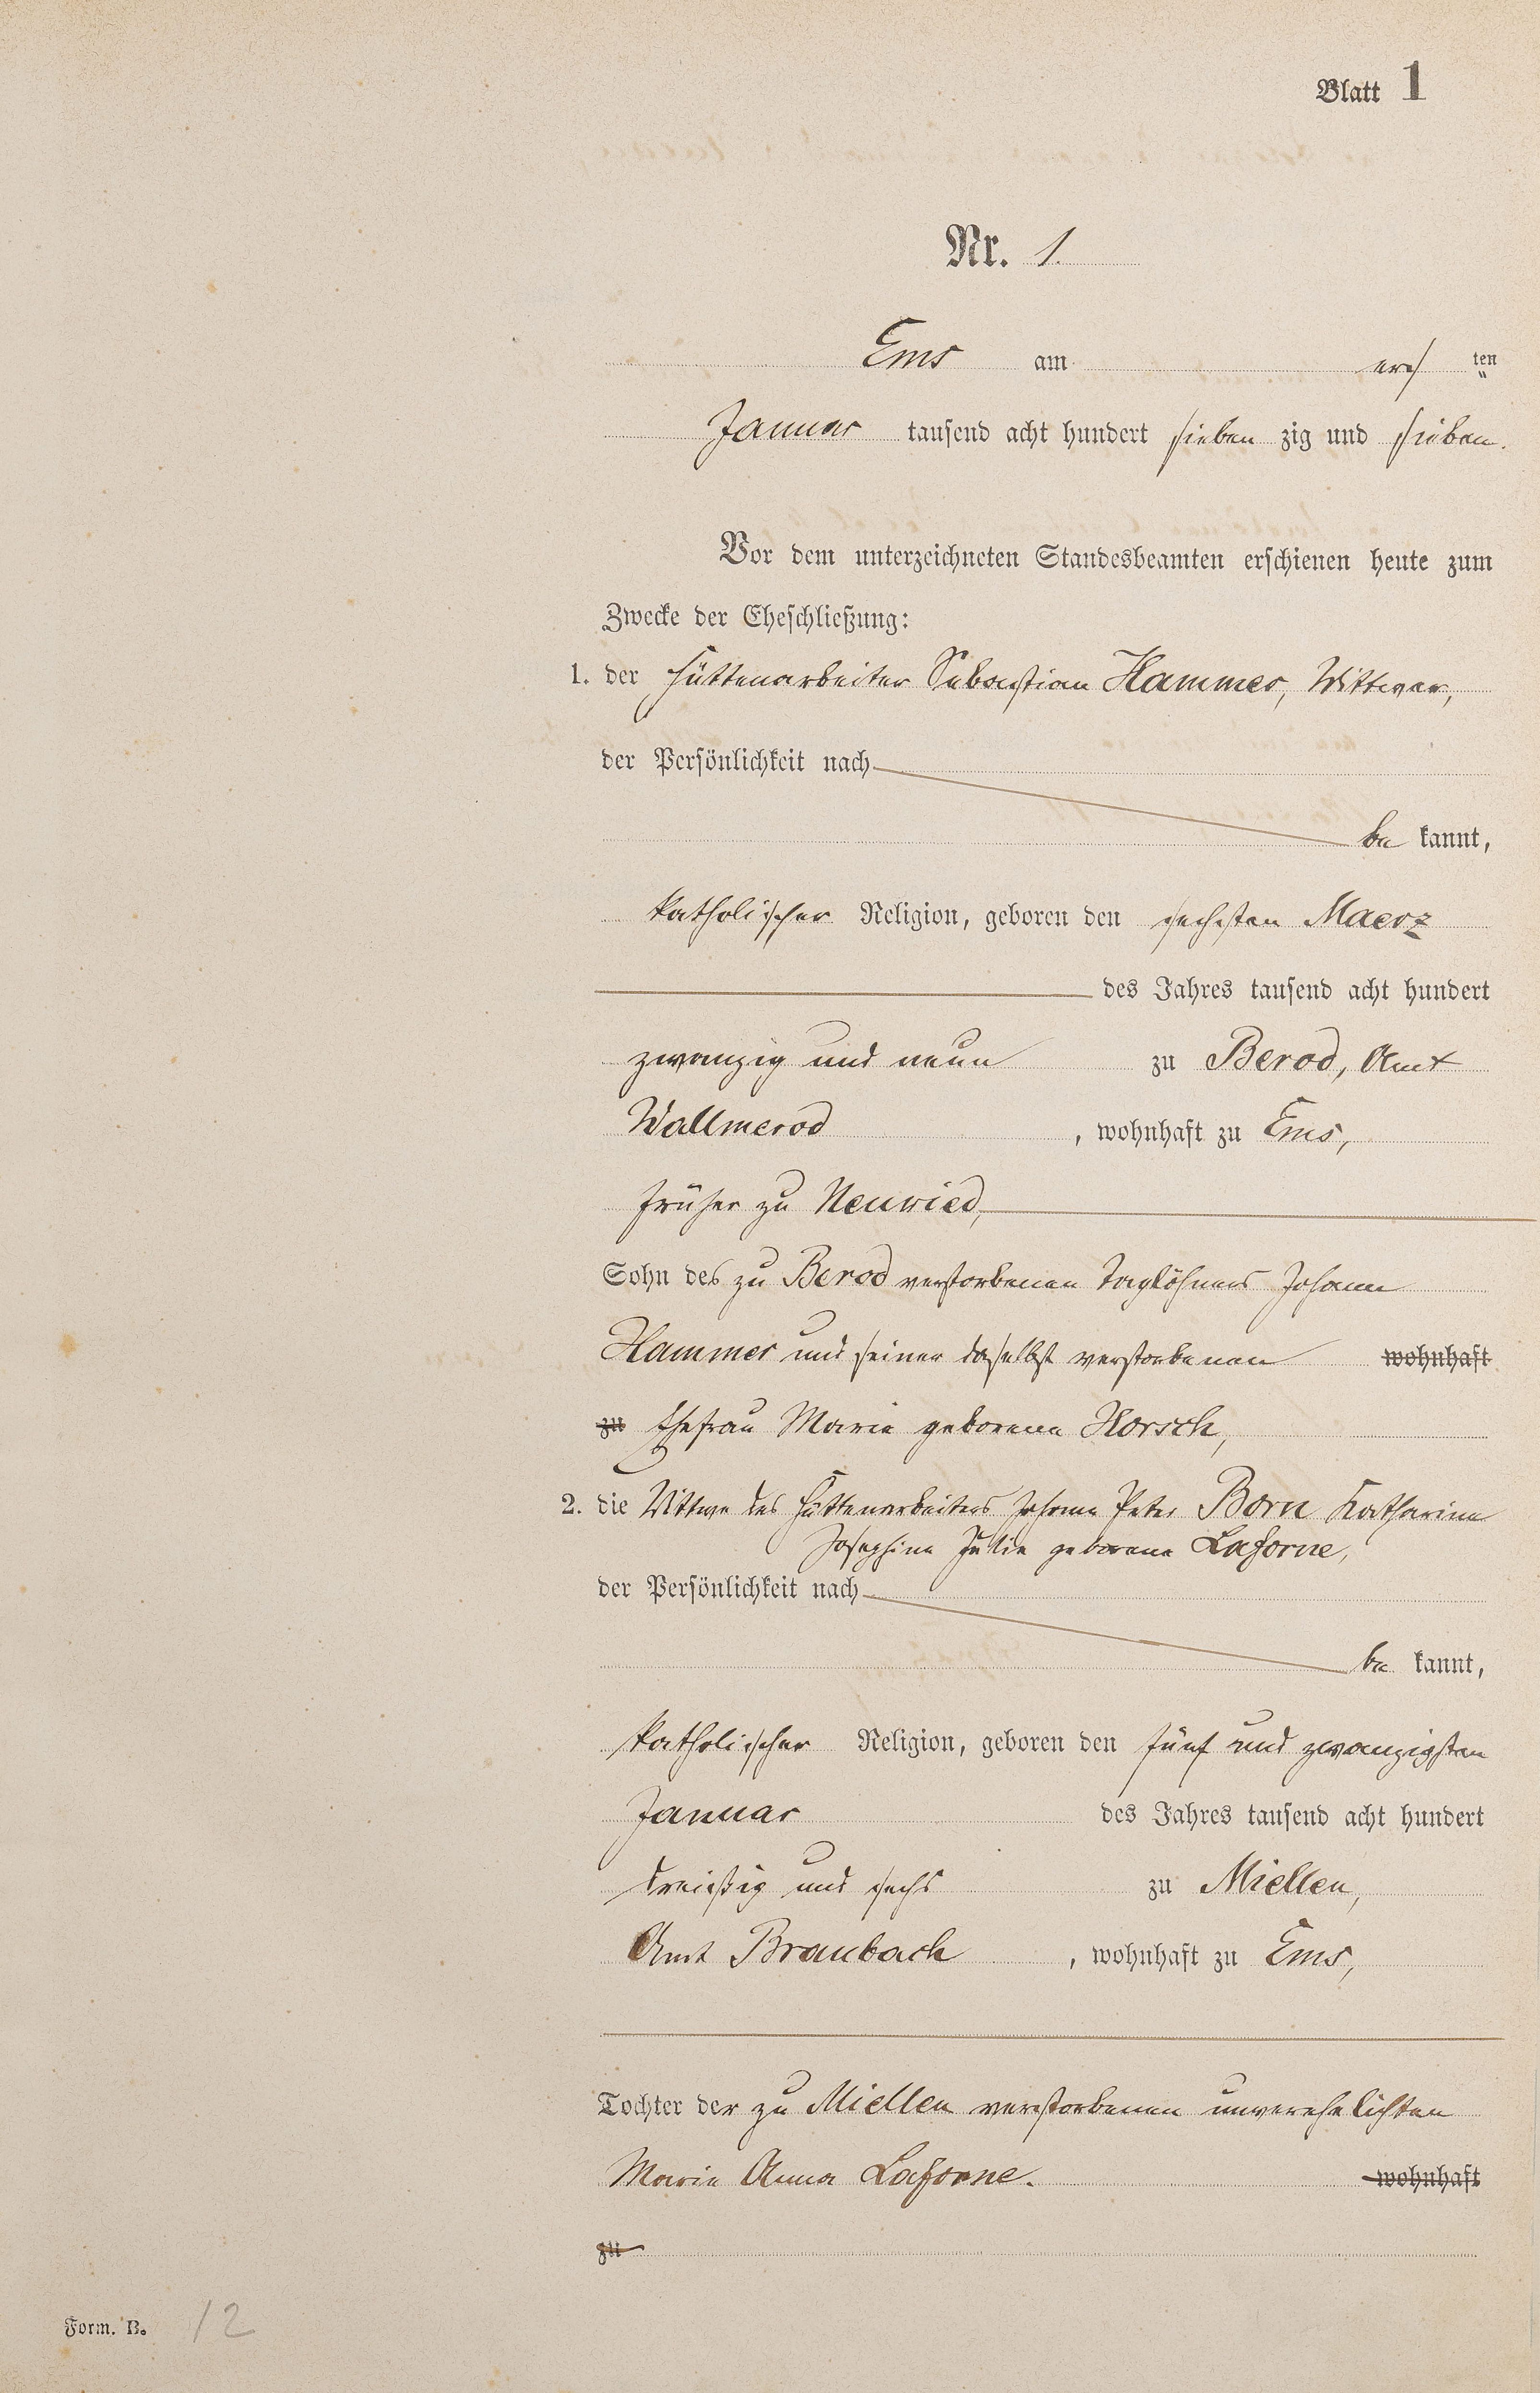 Blatt 1
Nr. 1.
Ems am ers ten
Januar tausend acht hundert sieben zig und sieben.
Vor dem unterzeichneten Standesbeamten erschienen heute zum
Zwecke der Eheschließung:
1. der Hüttenarbeiter Sebastian Hammer, Wittwer,
der Persönlichkeit nach
be kannt,
katholischer Religion, geboren den sechsten Maerz
des Jahres tausend acht hundert
zwanzig und neun zu Berod, Amt
Wallmerod, wohnhaft zu Ems,
früher zu Neuwied,
Sohn des zu Berod verstorbenen Taglöhners Johann
Hammer und seiner daselbst verstorbenen wohnhaft
zu Ehefrau Marie geborene Horsch,
2. die Wittwe des Hüttenarbeiters Johann Peter Born Katharina
Josephine Julie geborene Laforne,
der Persönlichkeit nach
be kannt,
katholischer Religion, geboren den fünf und zwanzigsten
Januar des Jahres tausend acht hundert
dreißig und sechs zu Miellen,
Amt Braubach, wohnhaft zu Ems,
Tochter der zu Miellen verstorbenen unverehelichten
Marie Anna Laforne. wohnhaft
zu
Form. B. 12